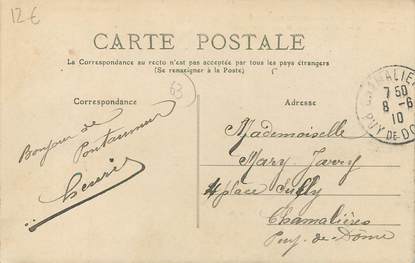 12€
CARTE POSTALE
La Correspondance au recto n'est pas acceptée par tous les pays étrangers
(Se renseigner à la Poste)
63
Correspondance
Adresse
Bonjour de
Pontaumur
Henri
Mademoiselle
Mary Jarry
place Sully
Chamalières
Puy-de-Dôme
CHAMALIER
7 50
8 -6
10
PUY-DE-DO